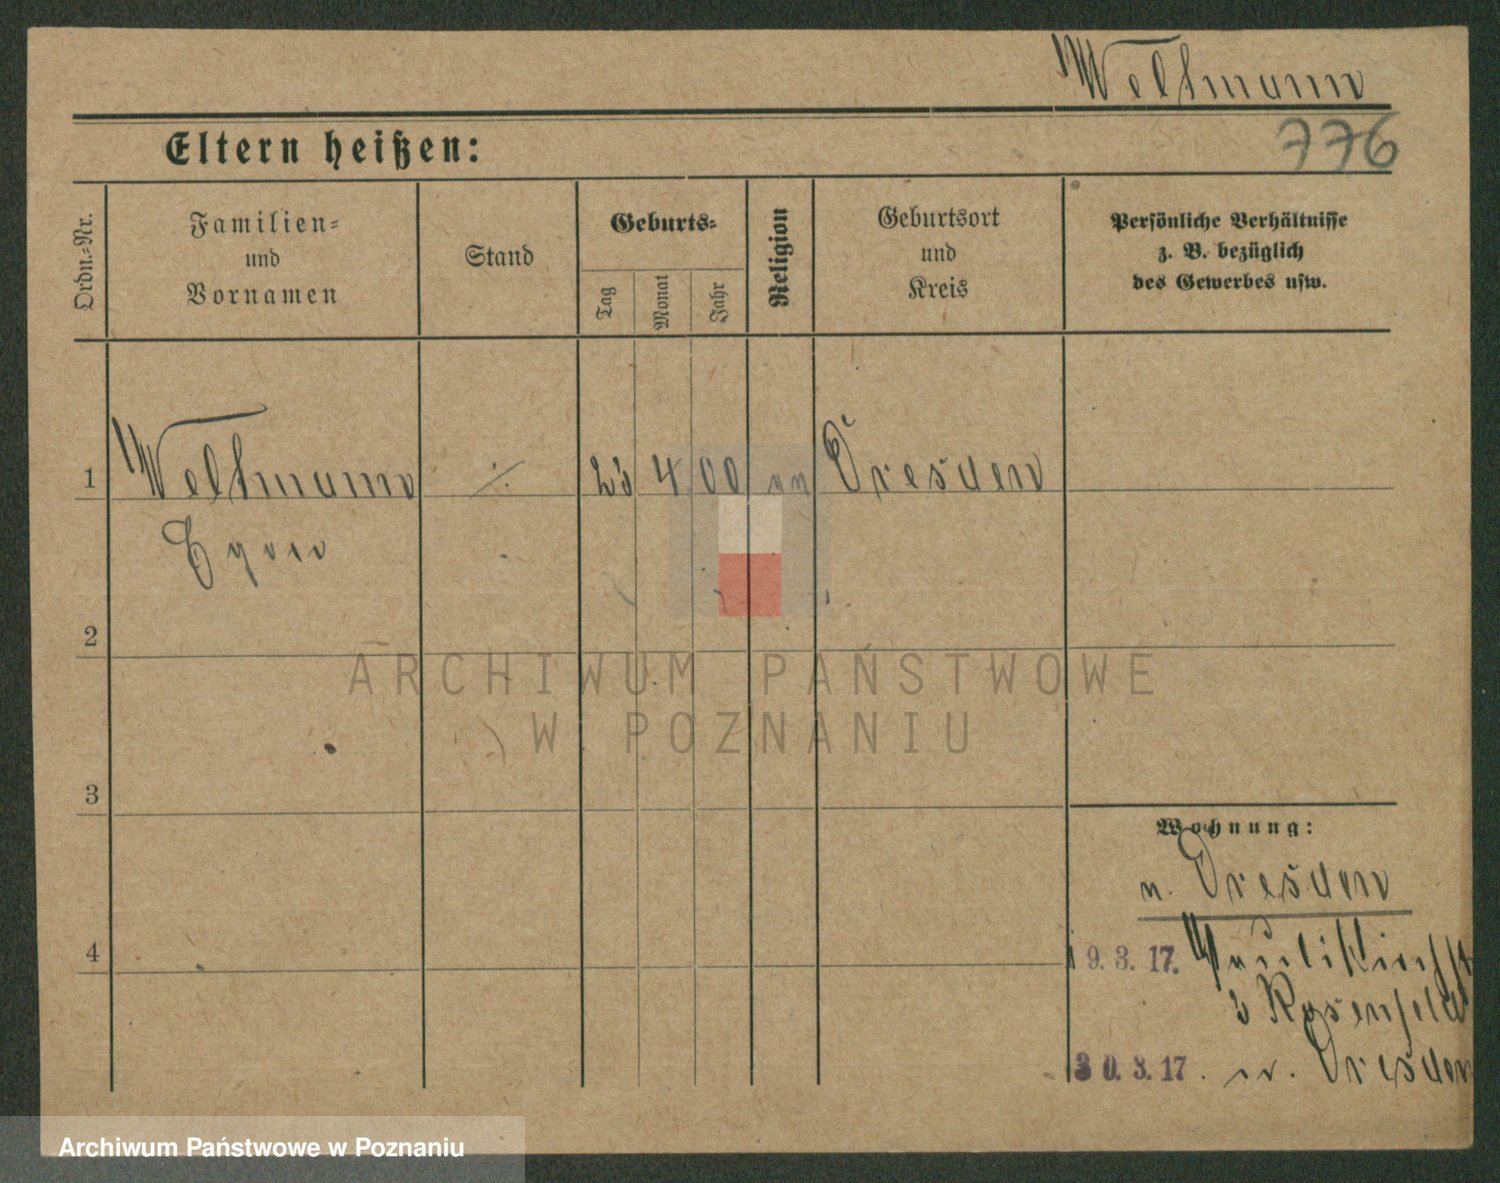 Weltmann
776
Eltern heißen:
Ordn.=Nr.
Familien=
und
Vornamen
Stand
Geburts=
Tag
Monat
Jahr
Religion
Geburtsort
und
Kreis
Persönliche Verhältnisse
z. B. bezüglich
des Gewerbes usw.
1 Weltmann ./. 23 4 00 Dresden
Egon
2
3
4
Wohnung:
n. Dresden
19.3.17. Paulikirchst
3 Rosenfeld
30.3.17. n. Dresden
ARCHIWUM PAŃSTWOWE
W POZNANIU
Archiwum Państwowe w Poznaniu